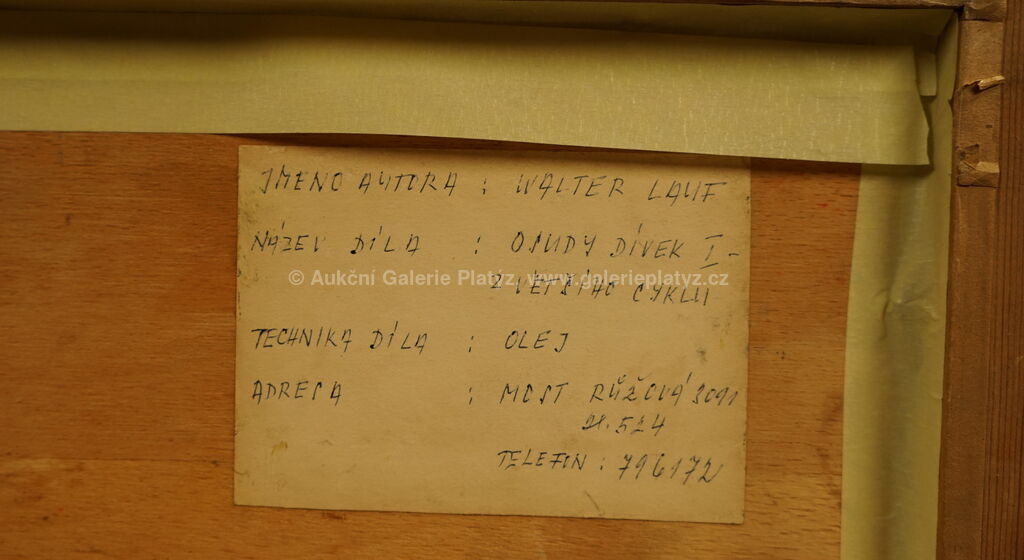 JMENO AUTORA : WALTER LAUF
NÁZEV DÍLA : OSUDY DÍVEK I -
© Aukční Galerie Platýz, www.galerieplatyz.cz
Z VĚTŠÍHO CYKLU
TECHNIKA DÍLA : OLEJ
ADRESA : MOST RŮŽOVÁ 3091
524
TELEFON : 796172